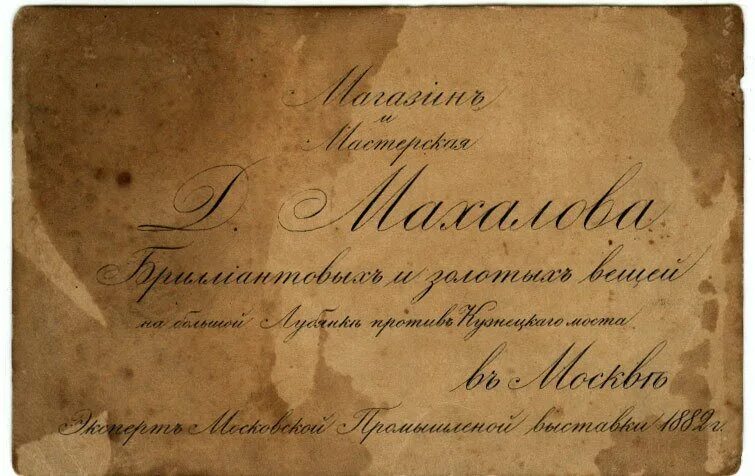 Магазінъ
и
Мастерская
Д. Махалова
Брилліантовыхъ и золотыхъ вещей
на большой Лубянкѣ противъ Кузнецкаго моста
въ Москвѣ
Экспертъ Московской Промышленой выставки 1882 г.